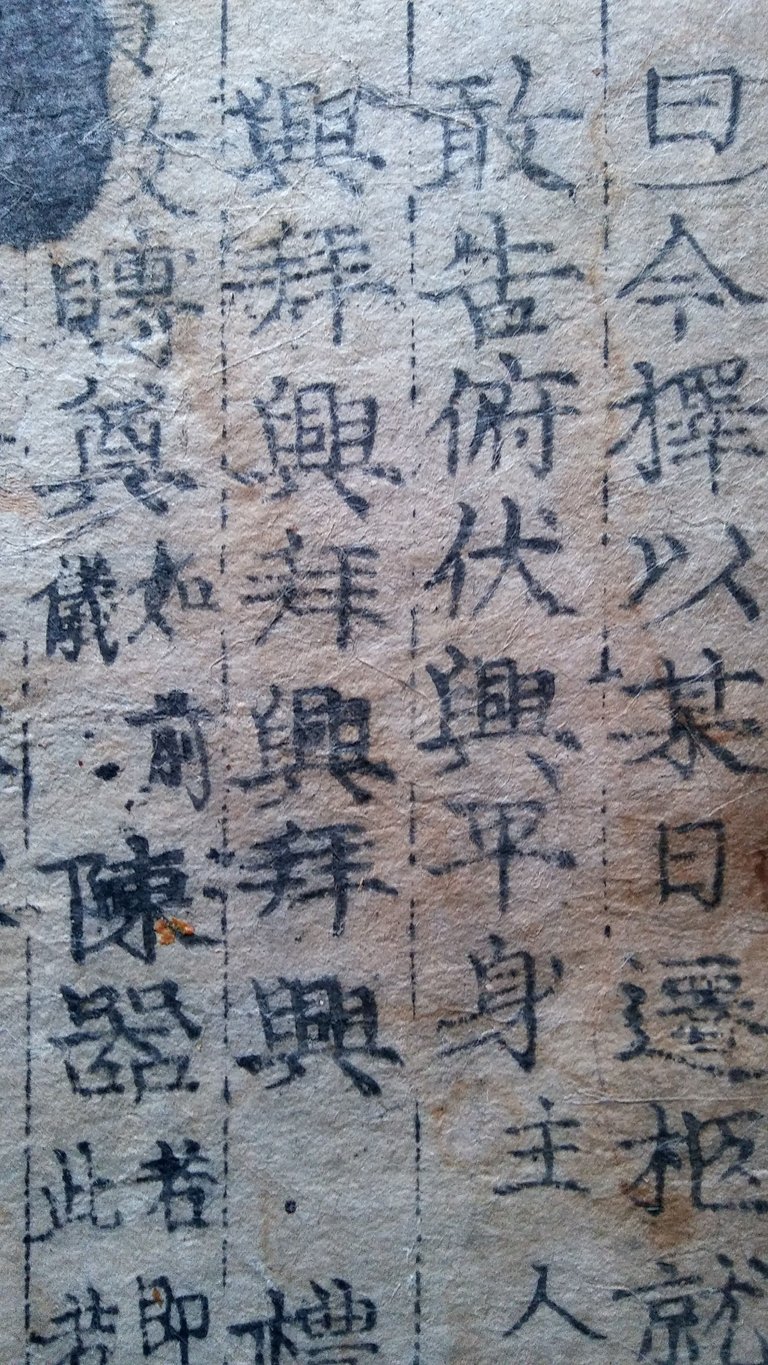 曰今擇以某日遷柩就
敢告俯伏興平身主人
興拜興拜興拜興禮
奠如儀前陳器若此即若